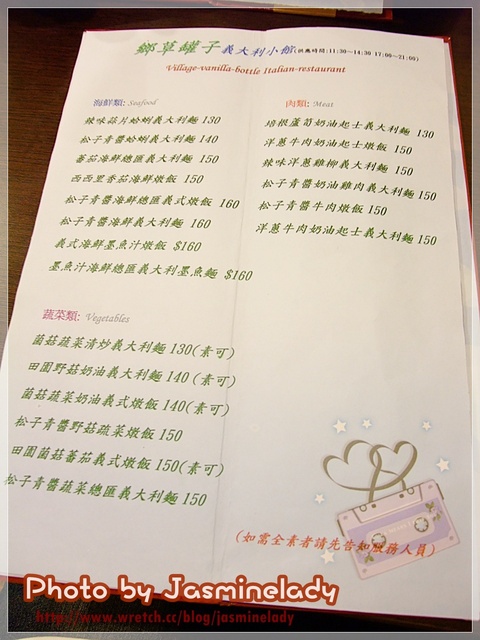 鄉草罐子義大利小館(供應時間:11:30~14:30 17:00~21:00)
Village-vanilla-bottle Italian-restaurant
海鮮類: Seafood
辣味蒜片蛤蜊義大利麵 130
松子青醬蛤蜊義大利麵 140
蕃茄海鮮總匯義大利麵 150
西西里番茄海鮮燉飯 150
松子青醬海鮮總匯義式燉飯 160
松子青醬海鮮義大利麵 160
義式海鮮墨魚汁燉飯 $160
墨魚汁海鮮總匯義大利墨魚麵 $160
肉類: Meat
培根蘆筍奶油起士義大利麵 130
洋蔥牛肉奶油起士燉飯 150
辣味洋蔥雞柳義大利麵 150
松子青醬奶油雞肉義大利麵 150
松子青醬牛肉燉飯 150
洋蔥牛肉奶油起士義大利麵 150
蔬菜類: Vegetables
菌菇蔬菜清炒義大利麵 130(素可)
田園野菇奶油義大利麵 140 (素可)
菌菇蔬菜奶油義式燉飯 140(素可)
松子青醬野菇蔬菜燉飯 150
田園菌菇蕃茄義式燉飯 150(素可)
松子青醬蔬菜總匯義大利麵 150
(如需全素者請先告知服務人員)
Photo by Jasminelady
http://www.wretch.cc/blog/jasminelady